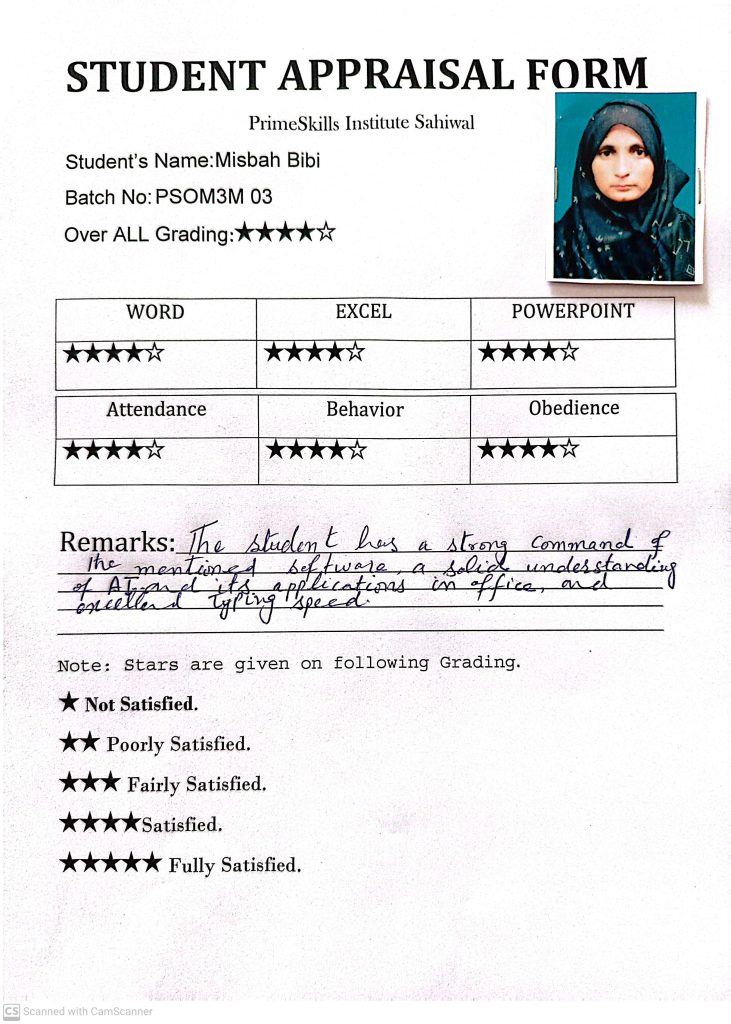 STUDENT APPRAISAL FORM
PrimeSkills Institute Sahiwal
Student's Name:Misbah Bibi
Batch No:PSOM3M 03
Over ALL Grading:★★★★☆
WORD EXCEL POWERPOINT
★★★★☆ ★★★★☆ ★★★★☆
Attendance Behavior Obedience
★★★★☆ ★★★★☆ ★★★★☆
Remarks: The student has a strong command of
the mentioned software, a solid understanding
of AI and its applications in office, and
excellend typing speed.
Note: Stars are given on following Grading.
★ Not Satisfied.
★★ Poorly Satisfied.
★★★ Fairly Satisfied.
★★★★Satisfied.
★★★★★ Fully Satisfied.
CS Scanned with CamScanner